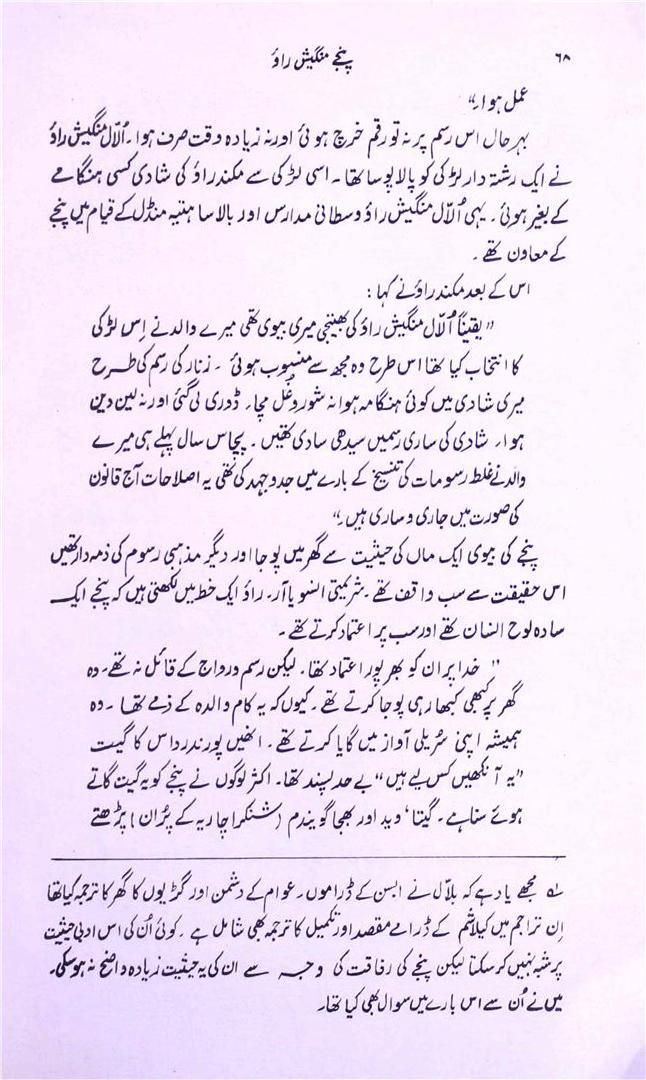 ۶۸
پنجے منگیش راؤ
عمل ہوا۔“
بہرحال اس رسم پر نہ تو رقم خرچ ہوئی اور نہ زیادہ وقت صرف ہوا۔ اُلّال منگیش راؤ
نے ایک رشتہ دار لڑکی کو پالا پوسا تھا۔ اسی لڑکی سے مکند راؤ کی شادی کسی ہنگامے
کے بغیر ہوئی۔ یہی اُلّال منگیش راؤ وسطانی مدارس اور بالا ساہتیہ منڈل کے قیام میں پنجے
کے معاون تھے۔
اس کے بعد مکند راؤ نے کہا:
”یقیناً اُلّال منگیش راؤ کی بھتیجی میری بیوی تھی میرے والد نے اِس لڑکی
کا انتخاب کیا تھا اس طرح وہ مجھ سے منسوب ہوئی ۔ زنار کی رسم کی طرح
میری شادی میں کوئی ہنگامہ ہوا نہ شور و غل مچا۔ ڈوری لی گئی اور نہ لین دین
ہوا۔ شادی کی ساری رسمیں سیدھی سادی تھیں ۔ پچاس سال پہلے ہی میرے
والد نے غلط رسومات کی تنسیخ کے بارے میں جدوجہد کی تھی یہ اصلاحات آج قانون
کی صورت میں جاری و ساری ہیں۔“
پنجے کی بیوی ایک ماں کی حیثیت سے گھر میں پوجا اور دیگر مذہبی رسوم کی ذمہ دار تھیں
اس حقیقت سے سب واقف تھے۔ شریمتی انسویا آر۔ راؤ ایک خط میں لکھتی ہیں کہ پنجے ایک
سادہ لوح انسان تھے اور سب پر اعتماد کرتے تھے۔
”خدا پر ان کو بھرپور اعتماد تھا۔ لیکن رسم و رواج کے قائل نہ تھے۔ وہ
گھر پر کبھی کبھار ہی پوجا کرتے تھے ۔ کیوں کہ یہ کام والدہ کے ذمے تھا ۔ وہ
ہمیشہ اپنی سُریلی آواز میں گایا کرتے تھے۔ انھیں پورندر داس کا گیت
”یہ آنکھیں کس لیے ہیں“ بے حد پسند تھا۔ اکثر لوگوں نے پنجے کو یہ گیت گاتے
ہوئے سنا ہے۔ گیتا، وید اور بھجا گویندم (شنکراچاریہ کے پُران) پڑھتے
لے مجھے یاد ہے کہ بلاّل نے ابسن کے ڈراموں۔ عوام کے دشمن اور گڑیوں کا گھر کا ترجمہ کیا تھا
اِن تراجم میں کیلاشم کے ڈرامے مقصد اور تکمیل کا ترجمہ بھی شامل ہے ۔ کوئی اُن کی اس ادبی حیثیت
پر شبہ نہیں کر سکتا لیکن پنجے کی رفاقت کی وجہ سے ان کی یہ حیثیت زیادہ واضح نہ ہو سکی۔
میں نے اُن سے اس بارے میں سوال بھی کیا تھا۔